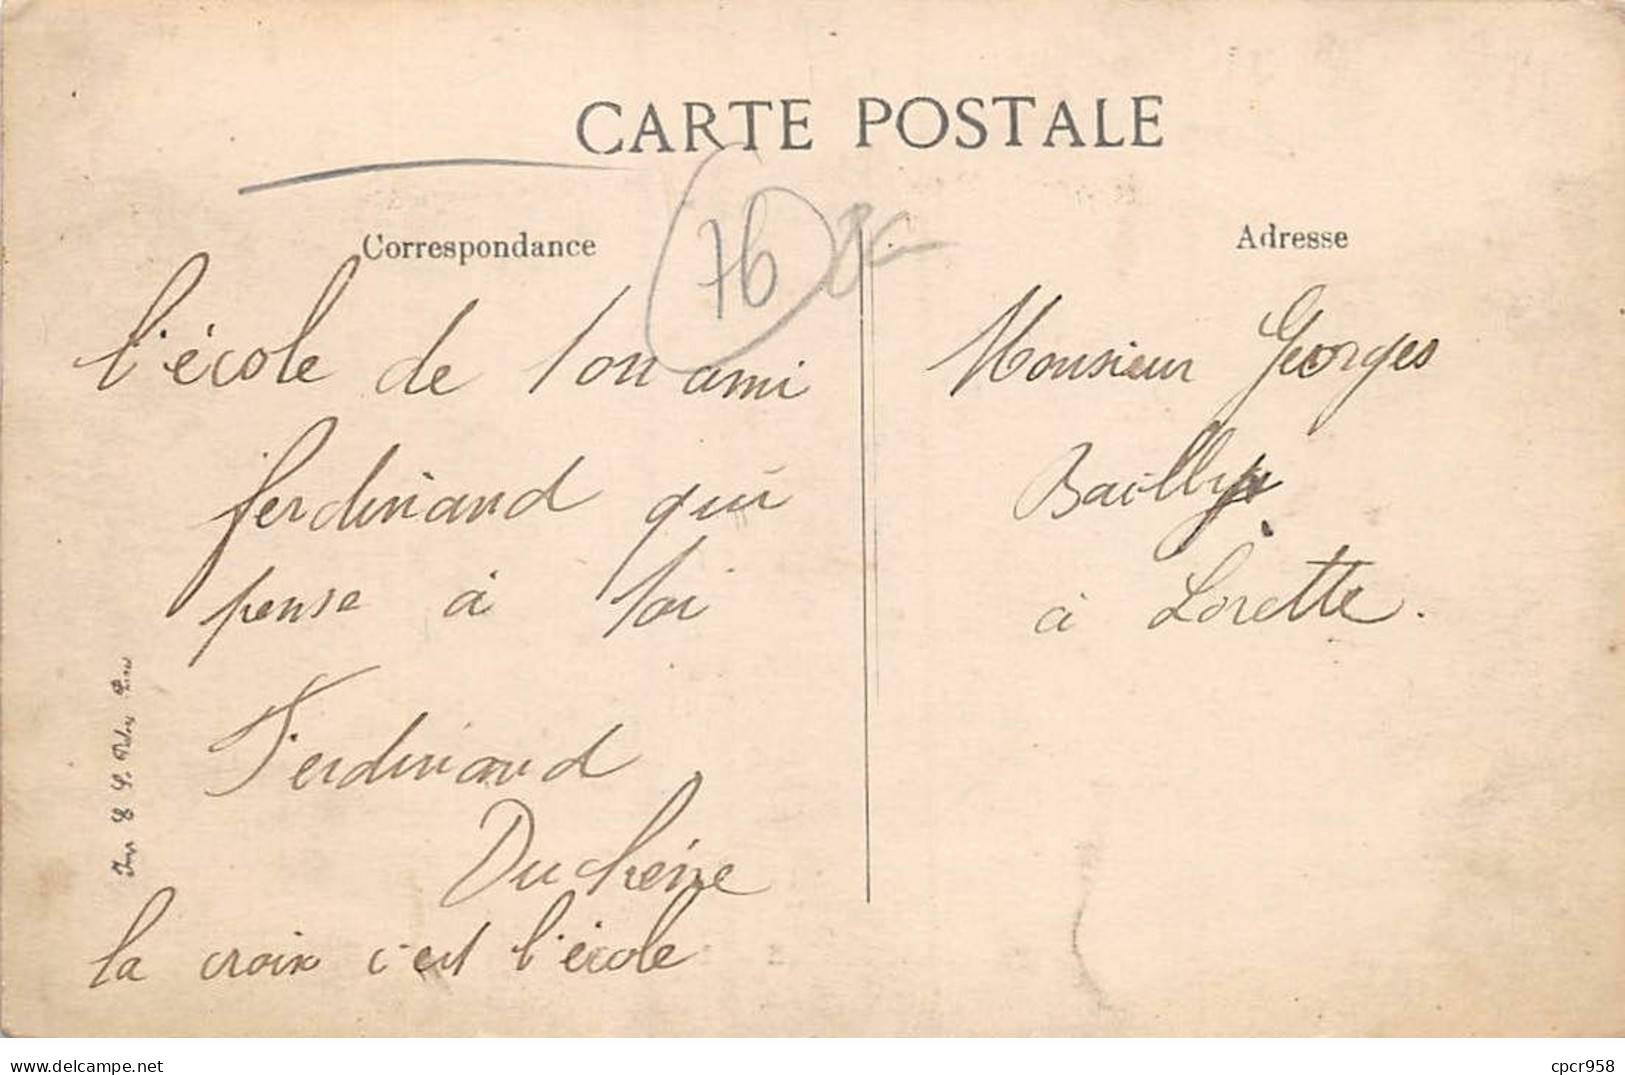 CARTE POSTALE
Correspondance
76
Adresse
l'école de ton ami
ferdinand qui
pense à toi
Ferdinand
Duchêne
la croix c'est l'école
Monsieur Georges
Bailly
à Lorette.
Imp
www.delcampe.net
cpcr958